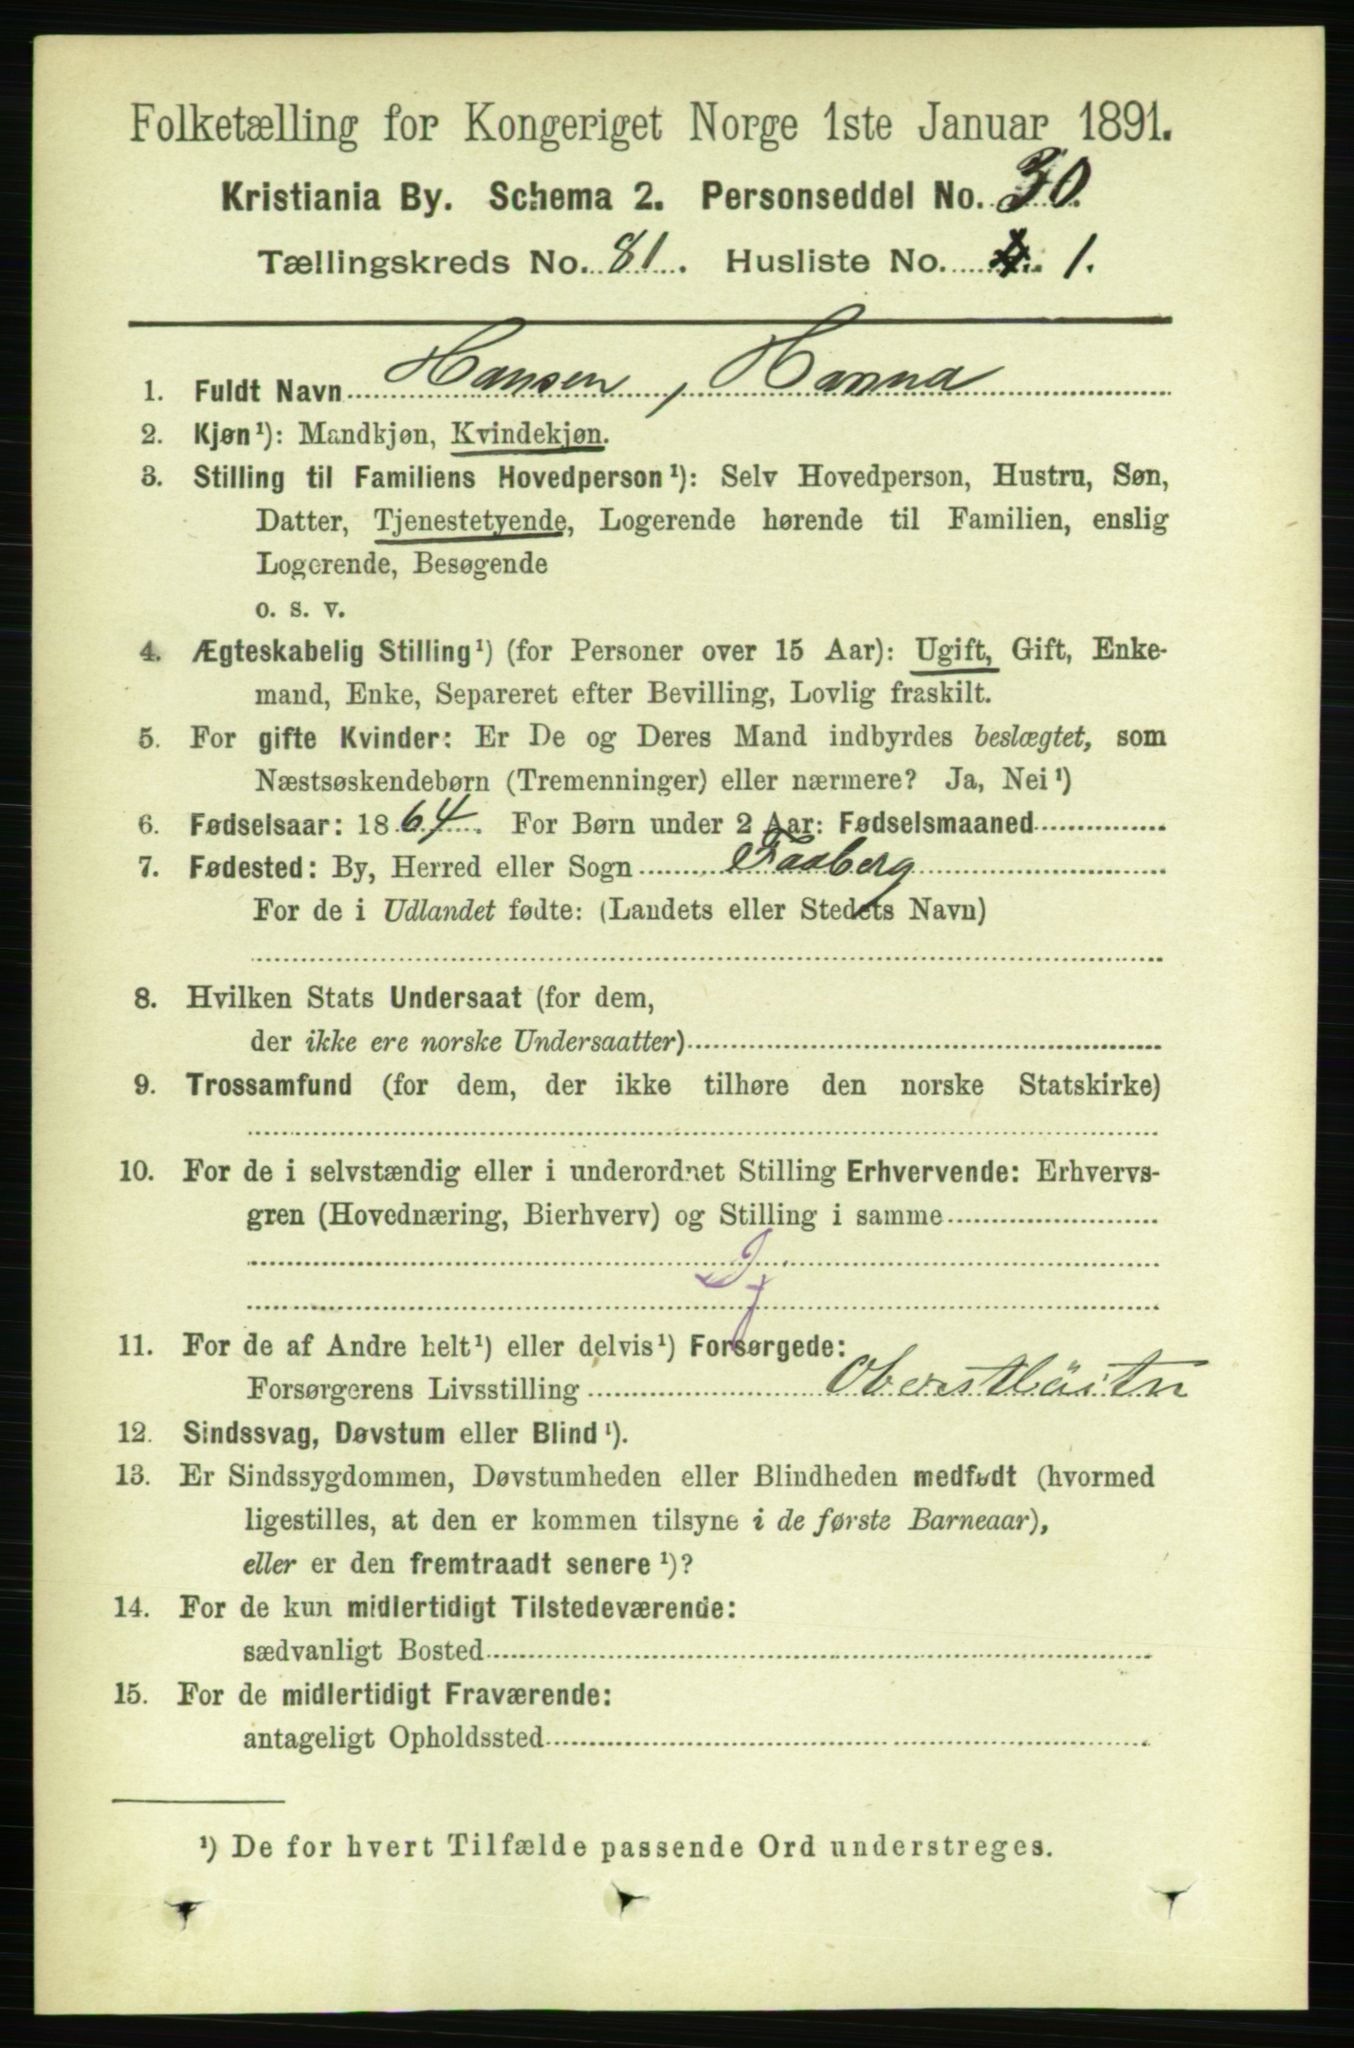 Folketælling for Kongeriget Norge 1ste Januar 1891.
Kristiania By. Schema 2. Personseddel No. 30
Tællingskreds No. 81. Husliste No. 1.
1. Fuldt Navn Hansen, Hanna
2. Kjøn¹): Mandkjøn, Kvindekjøn.
3. Stilling til Familiens Hovedperson¹): Selv Hovedperson, Hustru, Søn,
Datter, Tjenestetyende, Logerende hørende til Familien, enslig
Logerende, Besøgende
o. s. v.
4. Ægteskabelig Stilling¹) (for Personer over 15 Aar): Ugift, Gift, Enke-
mand, Enke, Separeret efter Bevilling, Lovlig fraskilt.
5. For gifte Kvinder: Er De og Deres Mand indbyrdes beslægtet, som
Næstsøskendebørn (Tremenninger) eller nærmere? Ja, Nei¹)
6. Fødselsaar: 1864. For Børn under 2 Aar: Fødselsmaaned
7. Fødested: By, Herred eller Sogn Faaberg
For de i Udlandet fødte: (Landets eller Stedets Navn)
8. Hvilken Stats Undersaat (for dem,
der ikke ere norske Undersaatter)
9. Trossamfund (for dem, der ikke tilhøre den norske Statskirke)
10. For de i selvstændig eller i underordnet Stilling Erhvervende: Erhvervs-
gren (Hovednæring, Bierhverv) og Stilling i samme
11. For de af Andre helt¹) eller delvis¹) Forsørgede:
Forsørgerens Livsstilling
12. Sindssvag, Døvstum eller Blind¹).
13. Er Sindssygdommen, Døvstumheden eller Blindheden medfødt (hvormed
ligestilles, at den er kommen tilsyne i de første Barneaar),
eller er den fremtraadt senere¹)?
14. For de kun midlertidigt Tilstedeværende:
sædvanligt Bosted
15. For de midlertidigt Fraværende:
antageligt Opholdssted
¹) De for hvert Tilfælde passende Ord understreges.